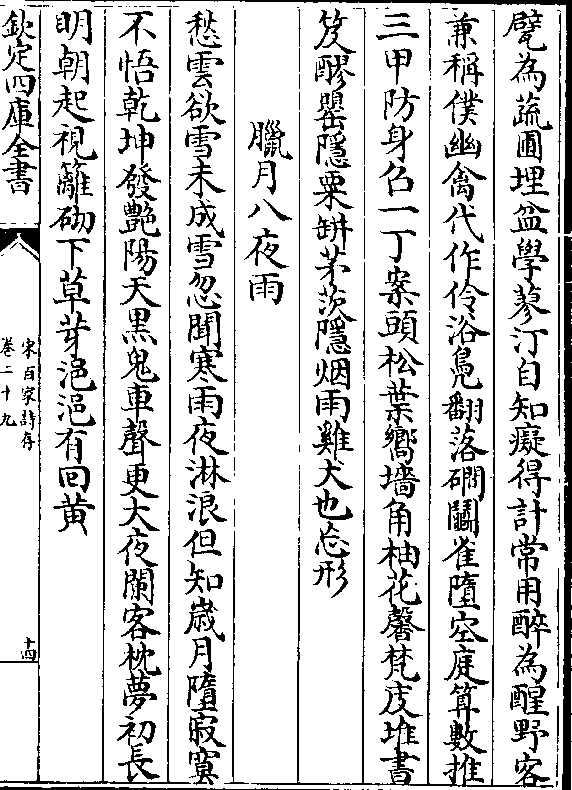 甓為蔬圃埋盆學蓼汀自知癡得計常用醉為醒野客
兼稱僕幽禽代作伶浴鳧翻落磵鬭雀墮空庭算數推
三甲防身仗一丁案頭松葉嚮墻角柚花馨梵庋堆書
笈醪罌隱粟缾茅茨隱烟雨雞犬也忘形
臘月八夜雨
愁雲欲雪未成雪忽聞寒雨夜淋浪但知歲月墮寂寞
不悟乾坤發艷陽天黑鬼車聲更大夜闌客枕夢初長
明朝起視籬砌下草芽浥浥有回黃
欽定四庫全書
宋百家詩存
卷二十九
十四